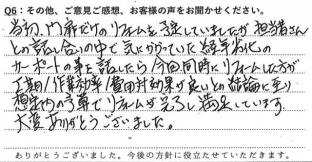 Q6：その他、ご意見ご感想、お客様の声をお聞かせください。
当初、門扉だけのリフォームを予定していましたが、担当者さん
との話し合いの中で気にかかっていた経年劣化の
カーポートの事を話したら、今回同時にリフォームした方が
工期/作業効率/費用対効果が良いとの結論に至り
想定内の予算でリフォームが完了し満足しています。
大変ありがとうございました。
ありがとうございました。今後の方針に役立たせていただきます。